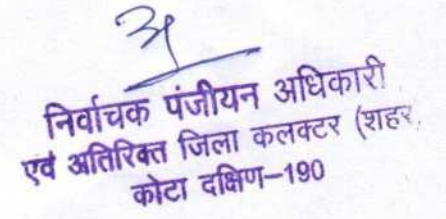 निर्वाचक पंजीयन अधिकारी
एवं अतिरिक्त जिला कलक्टर (शहर
कोटा दक्षिण-190